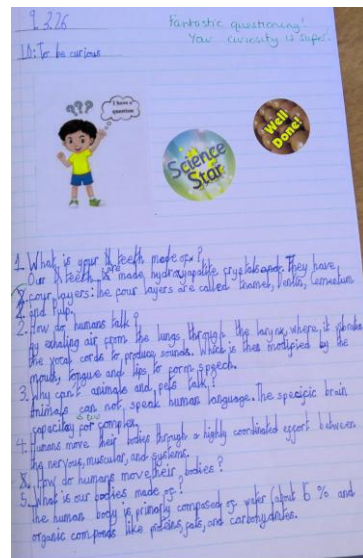 9.3.26
Fantastic questioning!
Your curiosity is super!
LO: To be curious
???
I have a
question
Science
Star
Well
Done!
1. What is your teeth made of?
Our teeth were made hydroxyapatite crystals. They have
four layers: the four layers are called Enamel, Dentin, Cementum
and Pulp.
2. How do humans talk?
by exhaling air from the lungs, through the larynx, where, it
the vocal cords to produce sounds. Which is then modified by the
mouth, tongue and lips, to form speech.
3. Why can't animals and, pets talk?
animals can not, speak human language. The specific brain
capacity for complex.
4. Humans move their bodies through a highly coordinated effort between
the nervous, muscular, and systems.
How do humans move their bodies?
5. What is our bodies made of?
the human body is primarily composed of water (about 6 % and
organic componds like proteins, fats, and carbohydrates.